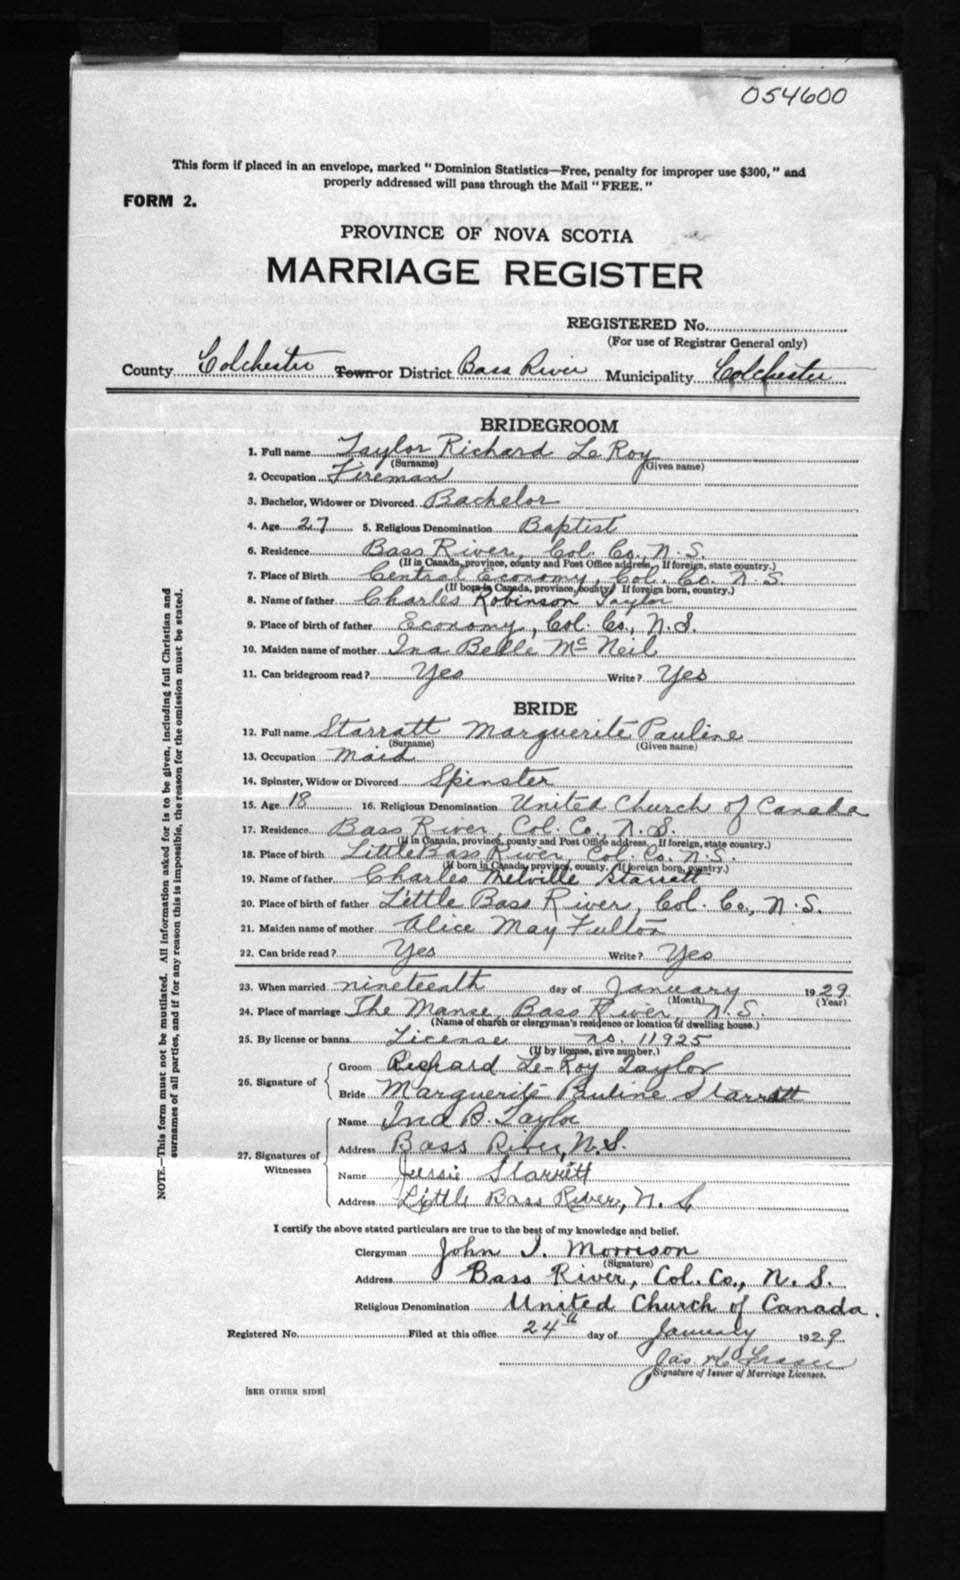 054600
This form if placed in an envelope, marked "Dominion Statistics—Free, penalty for improper use $300," and
properly addressed will pass through the Mail "FREE."
FORM 2.
PROVINCE OF NOVA SCOTIA
MARRIAGE REGISTER
REGISTERED No.
(For use of Registrar General only)
County Colchester Town or District Bass River Municipality Colchester
BRIDEGROOM
1. Full name Taylor Richard Le Roy
(Surname) (Given name)
2. Occupation Fireman
3. Bachelor, Widower or Divorced Bachelor
4. Age 27 5. Religious Denomination Baptist
6. Residence Bass River, Col. Co., N.S.
(If in Canada, province, county and Post Office address. If foreign, state country.)
7. Place of Birth Central Economy, Col. Co. N.S.
(If born in Canada, province, county. If foreign born, country.)
8. Name of father Charles Robinson Taylor
9. Place of birth of father Economy, Col. Co., N.S.
10. Maiden name of mother Ina Belle McNeil
11. Can bridegroom read? Yes Write? Yes
BRIDE
12. Full name Starratt Marguerite Pauline
(Surname) (Given name)
13. Occupation Maid
14. Spinster, Widow or Divorced Spinster
15. Age 18 16. Religious Denomination United Church of Canada
17. Residence Bass River, Col. Co., N.S.
(If in Canada, province, county and Post Office address. If foreign, state country.)
18. Place of birth Little Bass River, Col. Co. N.S.
(If born in Canada, province, county. If foreign born, country.)
19. Name of father Charles Melville Starratt
20. Place of birth of father Little Bass River, Col. Co., N.S.
21. Maiden name of mother Alice May Fulton
22. Can bride read? Yes Write? Yes
23. When married nineteenth day of January 1929
(Month) (Year)
24. Place of marriage The Manse, Bass River, N.S.
(Name of church or clergyman's residence or location of dwelling house.)
25. By license or banns License no. 11925
(If by license, give number.)
26. Signature of Groom Richard Le-Roy Taylor
Bride Marguerite Pauline Starratt
27. Signatures of Witnesses
Name Ina B. Taylor
Address Bass River, N.S.
Name Jessie Starratt
Address Little Bass River, N.S.
I certify the above stated particulars are true to the best of my knowledge and belief.
Clergyman John I. Morrison
(Signature)
Address Bass River, Col. Co., N.S.
Religious Denomination United Church of Canada.
Registered No. Filed at this office 24th day of January 1929
Jas
Signature of Issuer of Marriage Licenses.
[SEE OTHER SIDE]
NOTE.—This form must not be mutilated. All information asked for is to be given, including full Christian and
surnames of all parties, and if for any reason this is impossible, the reason for the omission must be stated.